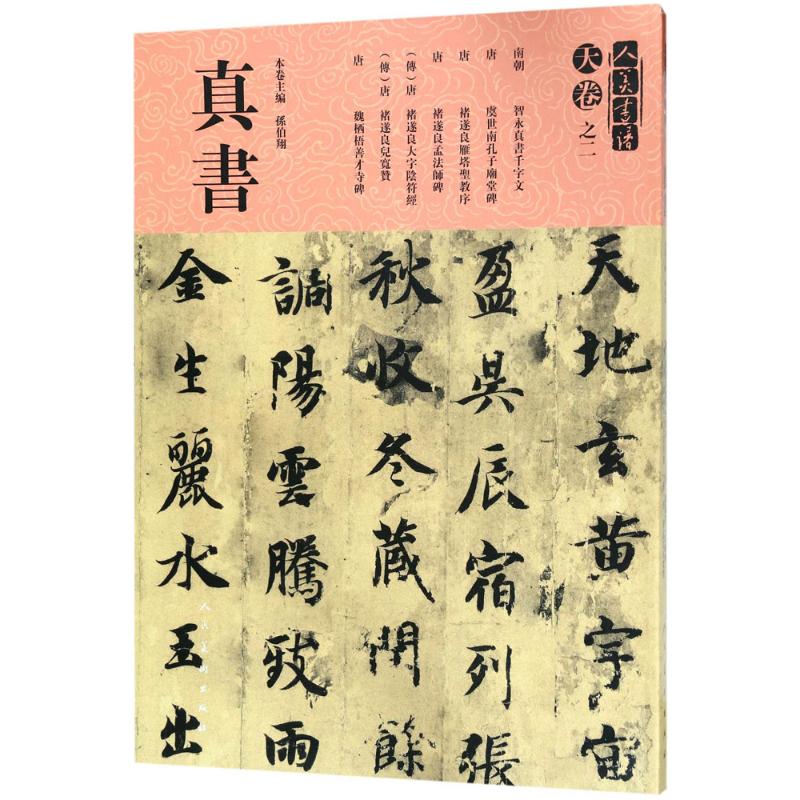 人美書譜
天卷之二
南朝 智永真書千字文
唐 虞世南孔子廟堂碑
唐 褚遂良雁塔聖教序
唐 褚遂良孟法師碑
（傳）唐 褚遂良大字陰符經
（傳）唐 褚遂良兒寬贊
唐 魏栖梧善才寺碑
本卷主編 孫伯翔
真書
天地玄黄宇宙
盈昃辰宿列張
秋收冬蔵閏餘
調陽雲騰致雨
金生麗水玉出
人民美術出版社